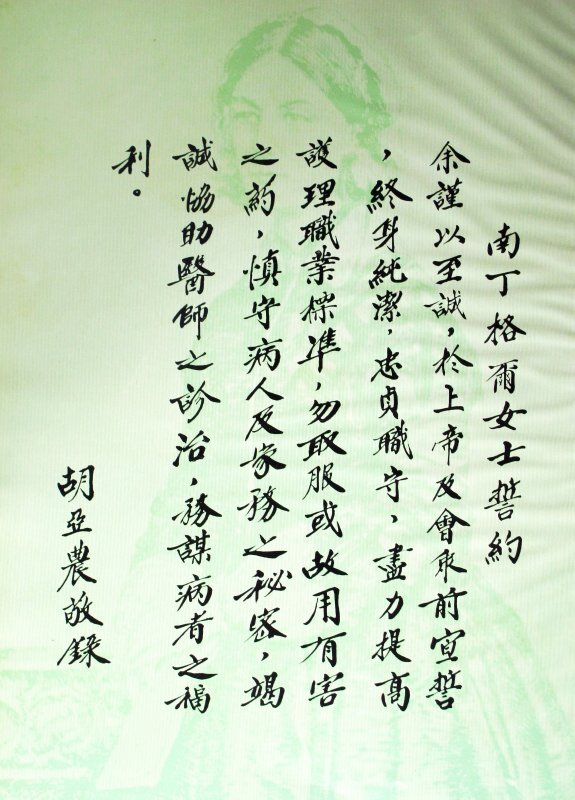 南丁格爾女士誓約
余謹以至誠，於上帝及會眾前宣誓
，終身純潔，忠貞職守，盡力提高
護理職業標準，勿取服或故用有害
之藥，慎守病人及家務之秘密，竭
誠協助醫師之診治，務謀病者之福
利。
胡亞農敬錄